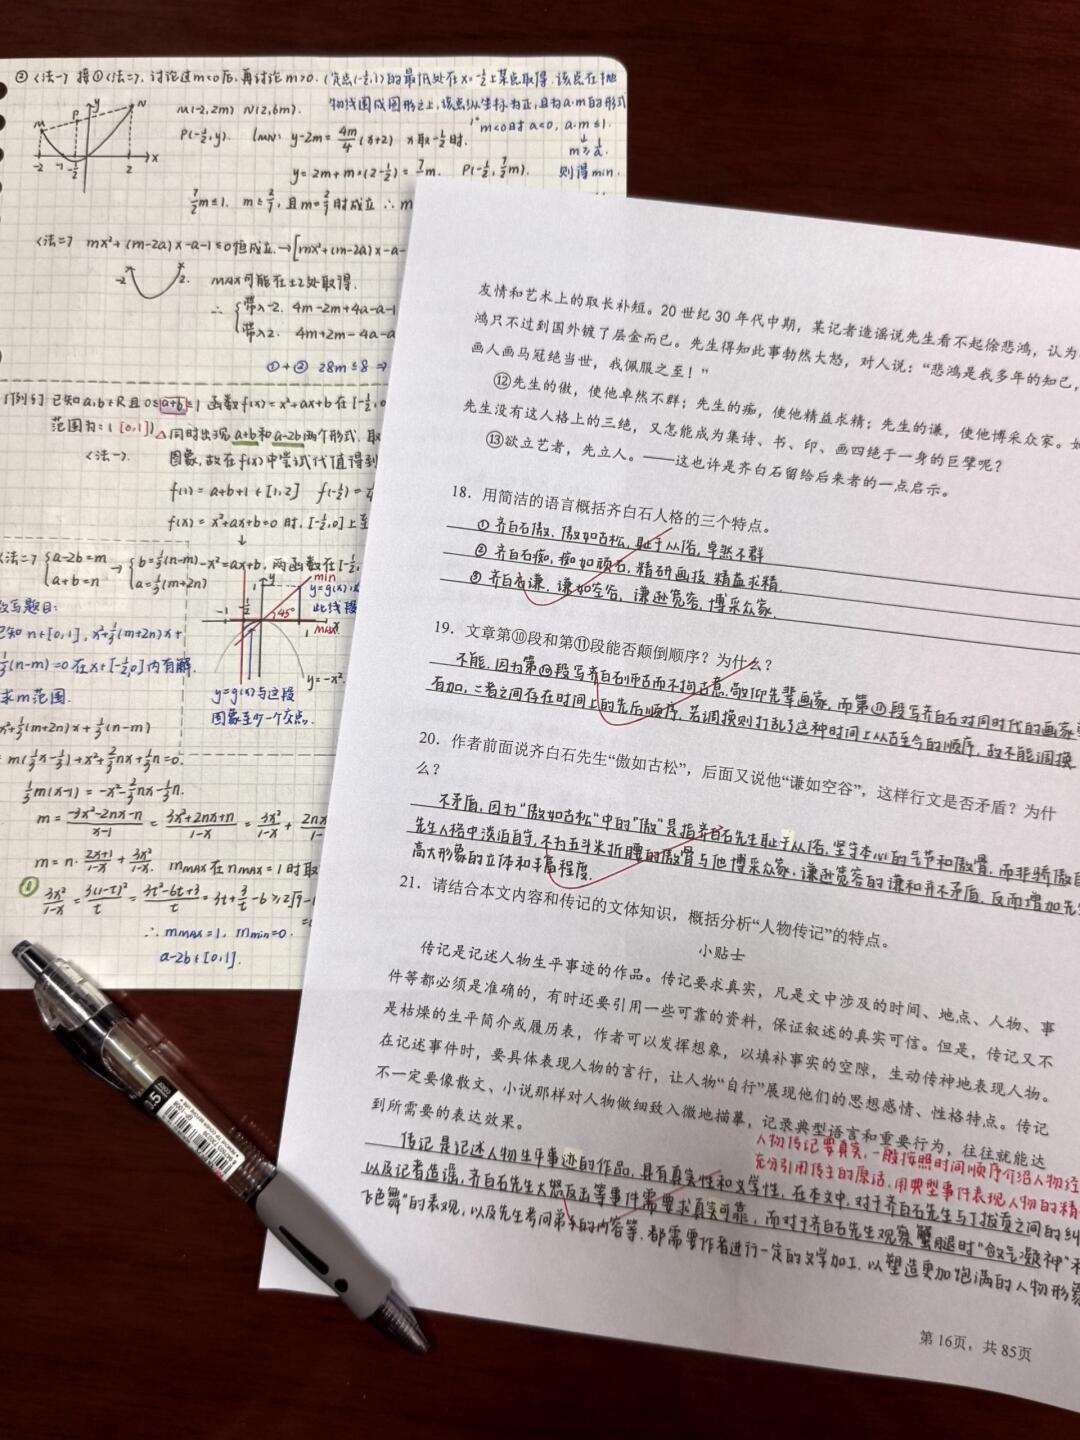 ② <法一> 接①<法二>, 讨论过m<0后, 再讨论m>0.
(定点(-½,1)的最低处在x=-½上某点取得. 该点在抛
物线围成图形之上, 该点纵坐标为正, 且为a·m的形式
1° m<0时 a<0, a·m≤1.
m≥1/a.
则得min.
M(-2,2m) N(2,6m).
P(-½,y). lMN: y-2m=4m/4(x+2) x取-½时.
y=2m+m×(2-½)=7/2m. P(-½,7/2m).
7/2m≤1. m≤2/7, 且m=2/7时成立 ∴m
M P N y x
-2 -1 -½ 2
<法二> mx²+(m-2a)x-a-1≤0恒成立.→[mx²+(m-2a)x-a-
-2 2. max可能在±2处取得.
∴ {带入-2. 4m-2m+4a-a-1
带入2. 4m+2m-4a-a
①+② 28m≤8 ⇒
[例5] 已知a,b∈R且0≤a+b≤1 函数f(x)=x²+ax+b在[-½,0
范围为: ( [0,1] )
△同时出现a+b和a-2b两个形式. 取
<法一>. 图象, 故在f(x)中尝试代值得到
f(1)=a+b+1∈[1,2] f(-½)=
f(x)=x²+ax+b=0时, [-½,0]上至
<法二> {a-2b=m a+b=n → {b=⅓(n-m) a=⅓(m+2n)
-x²=ax+b, 两函数在[-½,
改写题目:
已知n∈[0,1], x²+⅓(m+2n)x+
⅓(n-m)=0在x∈[-½,0]内有解.
求m范围.
y min
y=g(x),x
此线段
-1 -½ 1 45° max x
y=-x².
y=g(x)与这段
图象至少一个交点.
x²+⅓(m+2n)x+⅓(n-m)
=m(⅓x-⅓)+x²+⅔nx+⅓n=0.
⅓m(x-1)=-x²-⅔nx-⅓n.
m=-3x²-2nx-n/x-1=3x²+2nx+n/1-x=3x²/1-x+2nx
m=n·2x+1/1-x+3x²/1-x. mmax在nmax=1时取
① 3x²/1-x=3(1-t)²/t=3t²-6t+3/t=3t+3/t-6≥2√9-
∴ mmax=1, mmin=0.
a-2b∈[0,1].
0.5
友情和艺术上的取长补短。20世纪30年代中期，某记者造谣说先生看不起徐悲鸿，认为
鸿只不过到国外镀了层金而已。先生得知此事勃然大怒，对人说：“悲鸿是我多年的知己，
画人画马冠绝当世，我佩服之至！”
⑫先生的傲，使他卓然不群；先生的痴，使他精益求精；先生的谦，使他博采众家。如
先生没有这人格上的三绝，又怎能成为集诗、书、印、画四绝于一身的巨擘呢？
⑬欲立艺者，先立人。——这也许是齐白石留给后来者的一点启示。
18．用简洁的语言概括齐白石人格的三个特点。
① 齐白石傲, 傲如古松, 耻于从俗, 卓然不群
② 齐白石痴, 痴如顽石, 精研画技, 精益求精.
③ 齐白石谦, 谦如空谷, 谦逊宽容, 博采众家.
19．文章第⑩段和第⑪段能否颠倒顺序？为什么？
不能. 因为第⑩段写齐白石师古而不拘古意, 敬仰先辈画家, 而第⑪段写齐白石对同时代的画家
有加, 二者之间存在时间上的先后顺序, 若调换则打乱了这种时间上从古至今的顺序, 故不能调换
20．作者前面说齐白石先生“傲如古松”，后面又说他“谦如空谷”，这样行文是否矛盾？为什
么？
不矛盾. 因为“傲如古松”中的“傲”是指齐白石先生耻于从俗, 坚守本心的气节和傲骨, 而非骄傲自
先生人格中淡泊自守, 不为五斗米折腰的傲骨与他博采众家, 谦逊宽容的谦和并不矛盾, 反而增加先生
高大形象的立体和丰富程度.
21．请结合本文内容和传记的文体知识，概括分析“人物传记”的特点。
小贴士
传记是记述人物生平事迹的作品。传记要求真实，凡是文中涉及的时间、地点、人物、事
件等都必须是准确的，有时还要引用一些可靠的资料，保证叙述的真实可信。但是，传记又不
是枯燥的生平简介或履历表，作者可以发挥想象，以填补事实的空隙，生动传神地表现人物。
在记述事件时，要具体表现人物的言行，让人物“自行”展现他们的思想感情、性格特点。传记
不一定要像散文、小说那样对人物做细致入微地描摹，记录典型语言和重要行为，往往就能达
到所需要的表达效果。
人物传记要真实, 一般按照时间顺序介绍人物经
充分引用传主的原话, 用典型事件表现人物的精
传记是记述人物生平事迹的作品, 具有真实性和文学性, 在本文中, 对于齐白石先生与丁拔贡之间的纠
以及记者造谣, 齐白石先生大怒反击等事件需要求真实可靠, 而对于齐白石先生观察蟹腿时“敛气凝神”
飞色舞”的表观, 以及先生考问弟子的内容等, 都需要作者进行一定的文学加工, 以塑造更加饱满的人物形象
第16页，共85页